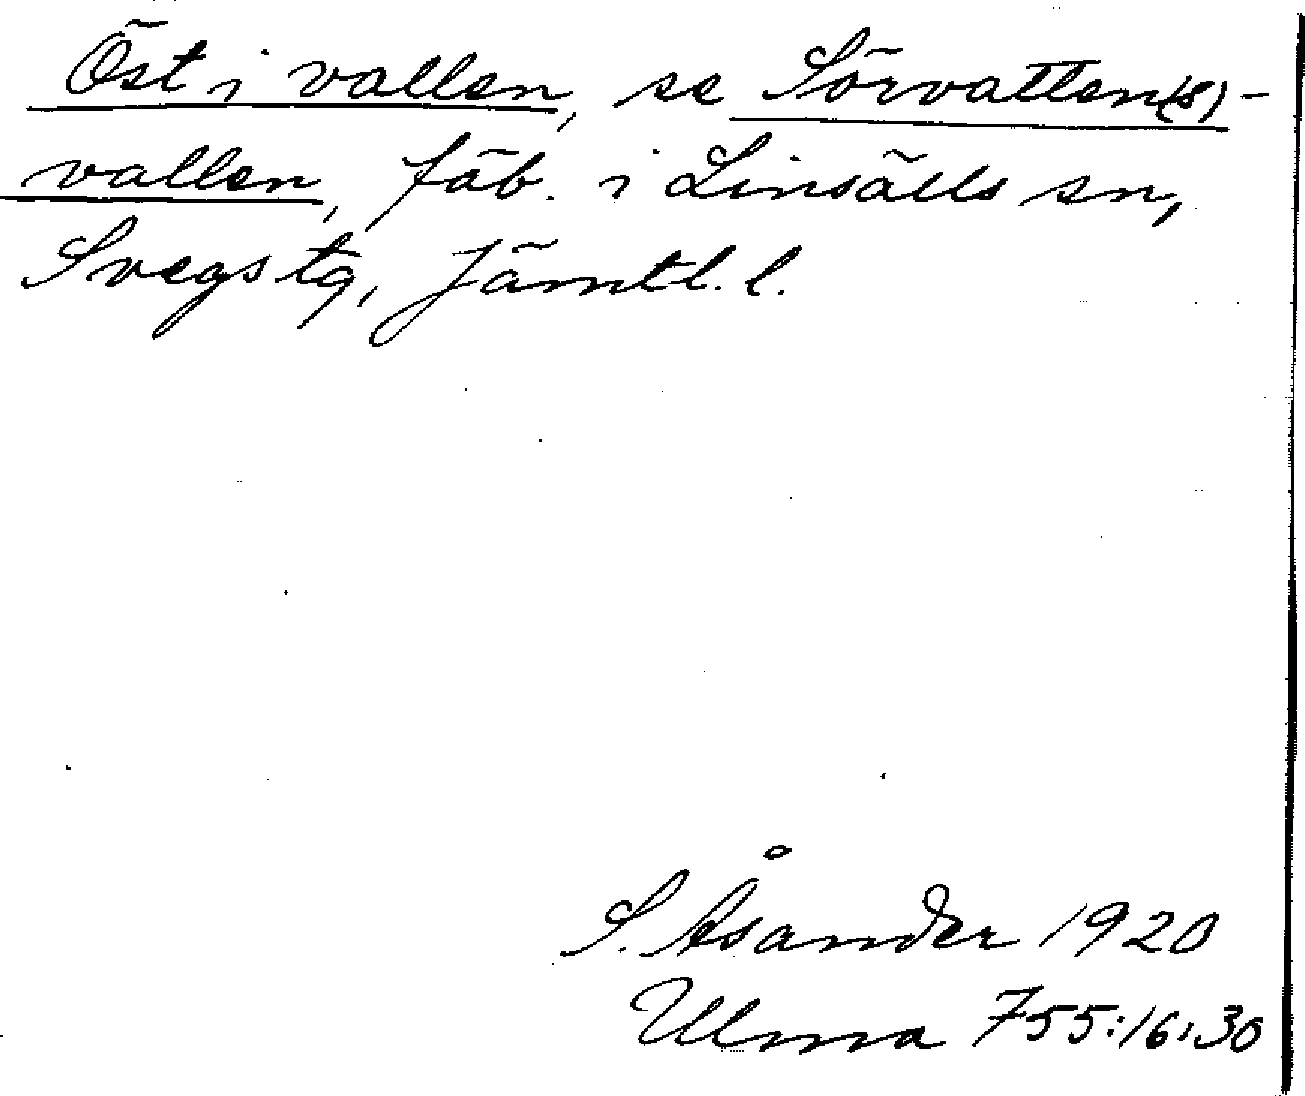 Öst i vallen, se Sörvatten(s)-
vallen, fäb. i Linsälls sn,
Svegs tg, Jämtl. l.
S. Åsander 1920
Ulma 755:16,30